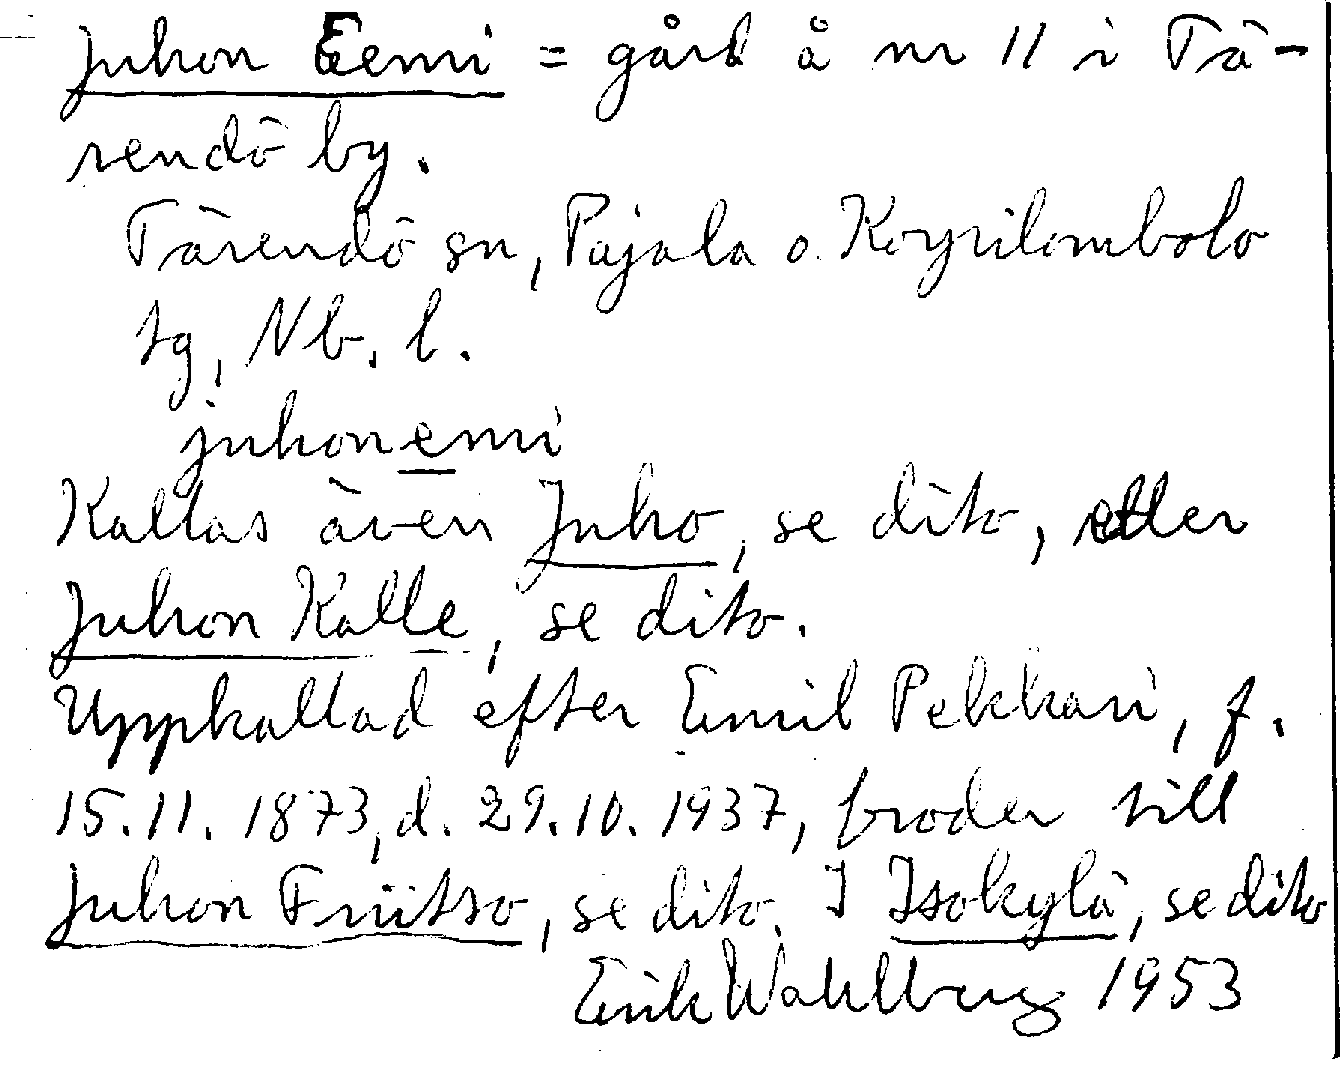 Juhon Eemi = gård å nr 11 i Tä-
rendö by.
Tärendö sn, Pajala o. Korpilombolo
tg, Nb. l.
juhonemi
Kallas även Juho, se dito, eller
Juhon Kalle, se dito.
Uppkallad efter Emil Pekkari, f.
15.11. 1873, d. 29.10. 1937, broder till
Juhon Friitso, se dito. I Isokylä, se dito
Erik Wahlberg 1953